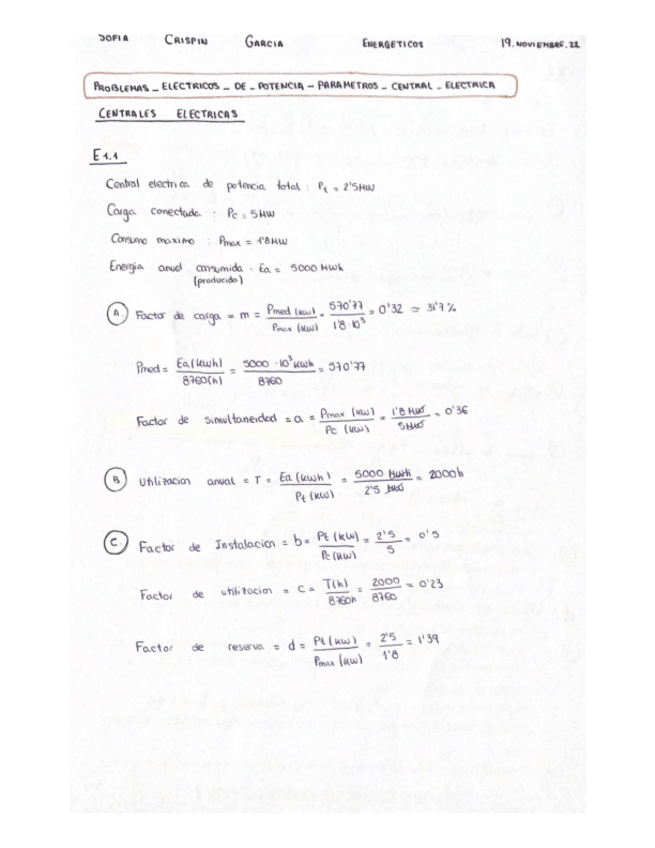 SOFIA CRISPIN GARCIA ENERGETICOS 19. NOVIEMBRE. 22
PROBLEMAS _ ELECTRICOS _ DE _ POTENCIA _ PARAMETROS _ CENTRAL _ ELECTRICA
CENTRALES ELECTRICAS
E1.1
Central electrica de potencia total : Pt = 2'5MW
Carga conectada : Pc = 5MW
Consumo maximo : Pmax = 1'8MW
Energia anual consumida . Ea = 5000 MWh
(producida)
A. Factor de carga = m = Pmed (kw) / Pmax (kw) = 570'77 / 1'8·10³ = 0'32 ≃ 31'7%
Pmed = Ea(kwh) / 8760(h) = 5000·10³ kwh / 8760 = 570'77
Factor de simultaneidad = a = Pmax (kw) / Pc (kw) = 1'8 MW / 5MW = 0'36
B Utilizacion anual = T = Ea (kwh) / Pt (kw) = 5000 MWh / 2'5 MW = 2000h
C. Factor de Instalacion = b = Pt (kw) / Pc (kw) = 2'5 / 5 = 0'5
Factor de utilizacion = c = T(h) / 8760h = 2000 / 8760 = 0'23
Factor de reserva = d = Pt (kw) / Pmax (kw) = 2'5 / 1'8 = 1'39